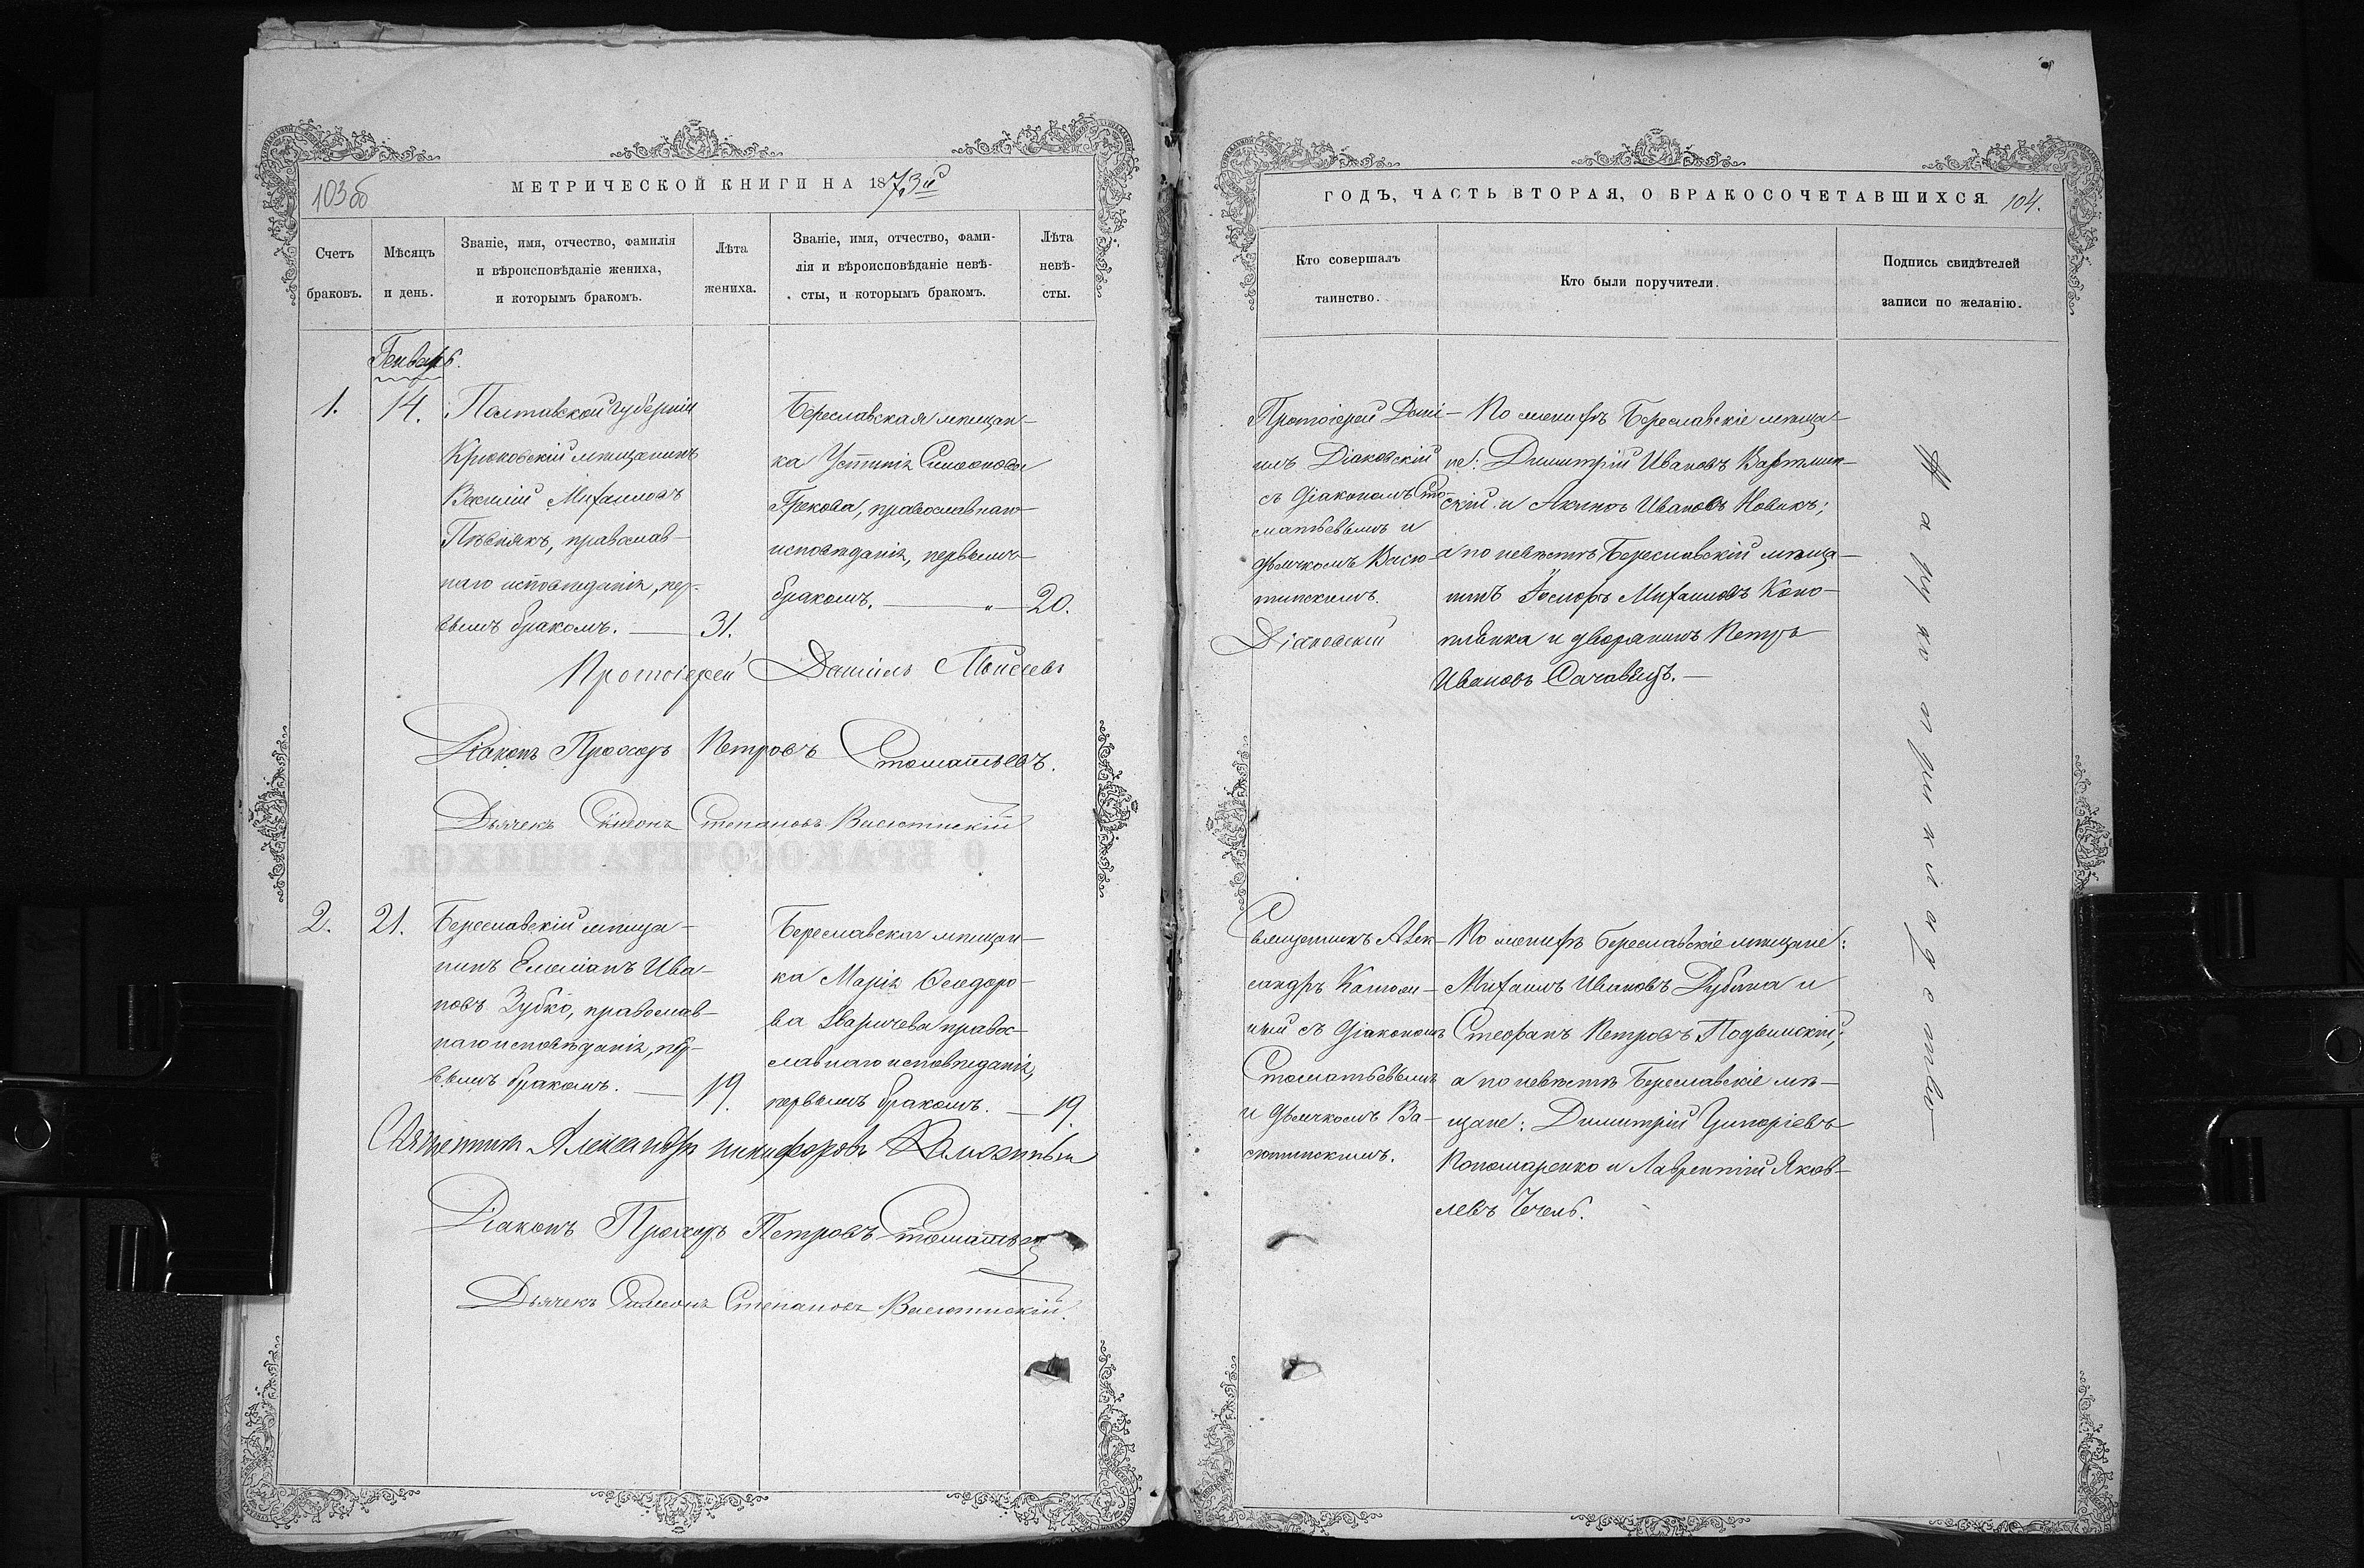 103об
МЕТРИЧЕСКОЙ КНИГИ НА 1873й
Счетъ браковъ.
Мѣсяцъ и день.
Званіе, имя, отчество, фамилія
и вѣроисповѣданіе жениха,
и которымъ бракомъ.
Лѣта жениха.
Званіе, имя, отчество, фами-
лія и вѣроисповѣданіе невѣ-
сты, и которымъ бракомъ.
Лѣта невѣ-
сты.
Генварь.
1.
14.
Полтавской губерніи
Крюковскій мѣщанинъ
Василій Михаиловъ
православ-
наго исповѣданія, пер-
вымъ бракомъ. — 31.
Береславская мѣщан-
ка Устинія Симеонова
Грекова, православнаго
исповѣданія, первымъ
бракомъ. — „ — 20.
Протоіерей Даніилъ Моисеевъ
Діаконъ Прохоръ Петровъ Стоматьевъ.
Дьячекъ Симеонъ Степановъ Васютинскій
2.
21.
Береславскій мѣща-
нинъ Емеліанъ Ива-
новъ Зубко, православ-
наго исповѣданія, пер-
вымъ бракомъ. — 19.
Береславская мѣщан-
ка Марія Ѳеодоро-
ва правос-
лавнаго исповѣданія,
первымъ бракомъ. — 19.
Священникъ Александръ Никифоровъ
Діаконъ Прохоръ Петровъ Стоматьевъ
Дьячекъ Симеонъ Степановъ Васютинскій.
ГОДЪ, ЧАСТЬ ВТОРАЯ, О БРАКОСОЧЕТАВШИХСЯ.
104.
Кто совершалъ
таинство.
Кто были поручители.
Подпись свидѣтелей
записи по желанію.
Протоіерей Дані-
илъ Діаковскій
съ діакономъ Сто-
матьевымъ и
дьячкомъ Васю-
тинскимъ.
Діаковскій
По женихѣ Береславскіе мѣща-
не: Димитрій Ивановъ
скій и Іванъ Ивановъ Новикъ;
а по невѣстѣ Береславскій мѣща-
нинъ Іосифъ Михаиловъ Коно-
плянка и дворянинъ Петръ
Ивановъ
Священникъ Алек-
сандръ
ный съ діакономъ
Стоматьевымъ
и дьячкомъ Ва-
сютинскимъ.
По женихѣ Береславскіе мѣщане:
Михаилъ Ивановъ Дубина и
Стефанъ Петровъ
а по невѣстѣ Береславскіе мѣ-
щане: Димитрій Григоріевъ
Пономаренко и Лаврентій Яков-
левъ